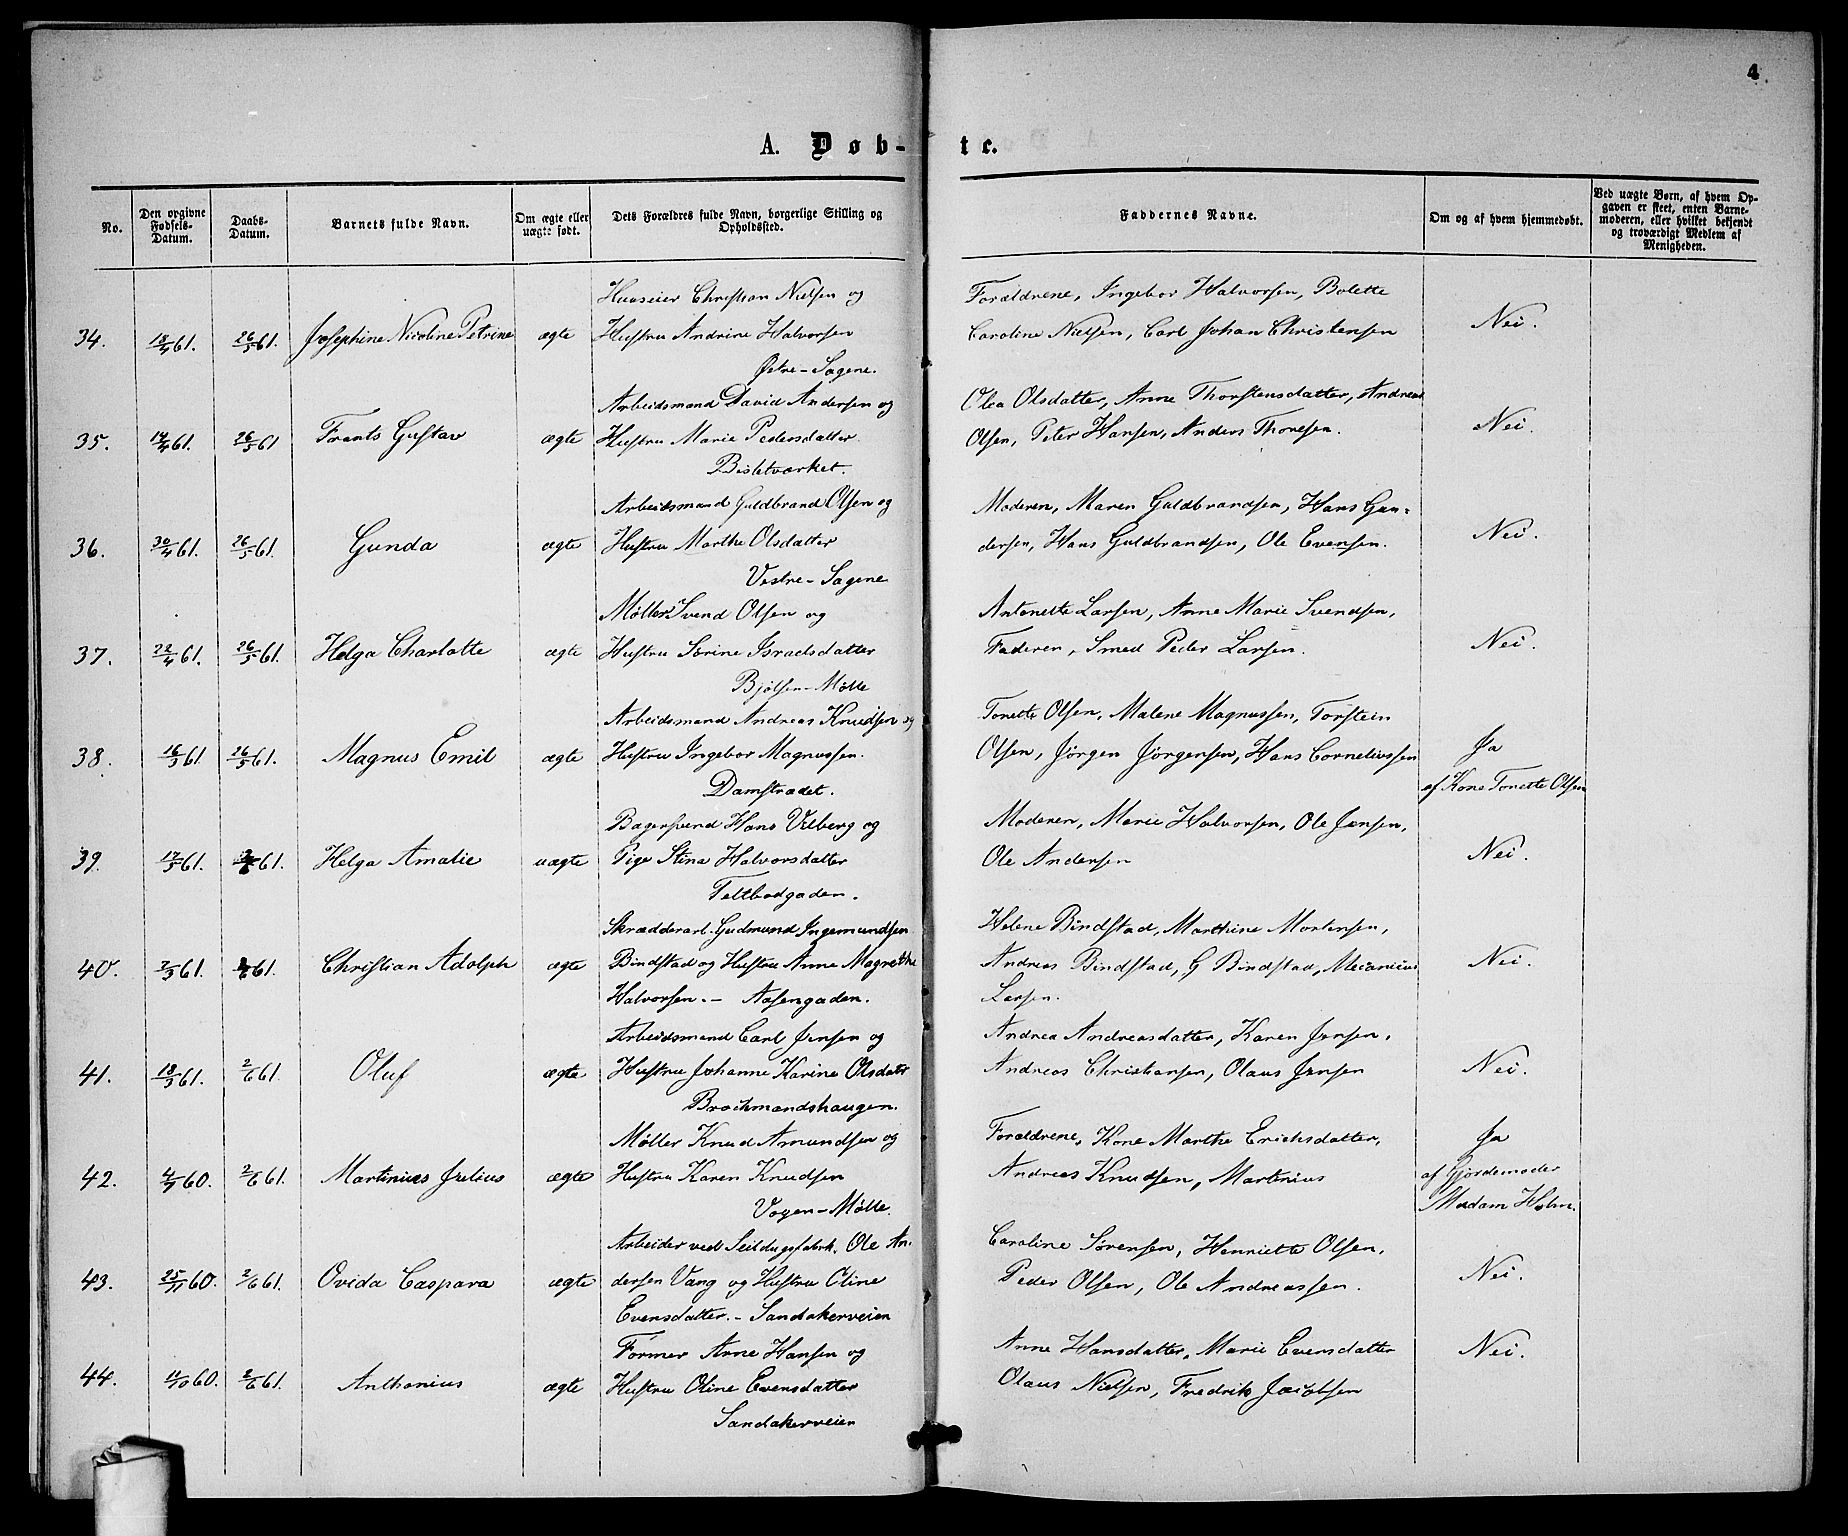 4
A. Døb-te.
No.
Den opgivne Fødsels-Datum.
Daabs-Datum.
Barnets fulde Navn.
Om ægte eller uægte født.
Dets Forældres fulde Navn, borgerlige Stilling og Opholdssted.
Faddernes Navne.
Om og af hvem hjemmedøbt.
Ved uægte Børn, af hvem Opgaven er skeet, enten Barnemoderen, eller hvilket bekjendt og troværdigt Medlem af Menigheden.
Huuseier Christian Nielsen og
Forældrene, Ingebor Halvorsen, Bolette
34. 18/4 61. 26/5 61. Josephine Nicoline Petrine ægte Hustru Andrine Halvorsen
Caroline Nielsen, Carl Johan Christensen Nei.
Østre-Sagene.
Arbeidsmand David Andersen og
Olea Olsdatter, Anne Thorstensdatter, Andreas
35. 14/4 61. 26/5 61 Frants Gustav ægte Hustru Marie Pedersdatter
Olsen, Peter Hansen, Anders Thoresen. Nei.
Bisletværket.
Arbeidsmand Guldbrand Olsen og
Moderen, Maren Guldbrandsen, Hans Gun-
36. 30/4 61. 26/5 61. Gunda ægte Hustru Marthe Olsdatter
dersen, Hans Guldbrandsen, Ole Evensen. Nei.
Vestre-Sagene
Møller Svend Olsen og
Antonette Larsen, Anne Marie Svendsen,
37. 22/4 61. 26/5 61. Helga Charlotte ægte Hustru Sørine Israelsdatter
Faderen, Smed Peder Larsen. Nei.
Bjølsen-Mølle
Arbeidsmand Andreas Knudsen og
Tonette Olsen, Malene Magnussen, Torstein
38. 16/5 61 26/5 61. Magnus Emil ægte Hustru Ingebor Magnussen.
Olsen, Jørgen Jørgensen, Hans Corneliussen Ja
Damstrædet.
af Kone Tonette Olsen
Bagersvend Hans Vilberg og
Moderen, Marie Halvorsen, Ole Jensen,
39. 17/5 61. 61. Helga Amalie uægte Pige Stina Halvorsdatter
Ole Andersen Nei.
Feltbodgaden.
Skrædderarb. Gudmund Ingemundsen
Helene Bindstad, Marthine Mortensen,
40. 2/3 61. 61. Christian Adolph ægte Bindstad og Hustru Anne Magrethe
Andreas Bindstad, G Bindstad, Mecanicus Nei.
Halvorsen. - Aasengaden.
Larsen.
Arbeidsmand Carl Jensen og
Andrea Andreasdatter, Karen Jensen,
41. 18/5 61. 2/6 61. Oluf ægte Hustru Johanne Karine Olsdatter
Andreas Christiansen, Olaus Jensen Nei.
Brochmandshaugen.
Møller Knud Amundsen og
Forældrene, Kone Marthe Erichsdatter, Ja
42. 4/9 60. 2/6 61. Martinius Julius ægte Hustru Karen Knudsen
Andreas Knudsen, Martinius af Gjordemoder
Vøgen-Mølle.
Madam Holm.
Arbeider ved Seildugsfabrk. Ole An-
Caroline Sørensen, Henriette Olsen,
43. 25/11 60. 2/6 61. Ovida Caspara ægte dersen Vang og Hustru Oline
Peder Olsen, Ole Andreassen. Nei.
Evensdatter. - Sandakerveien
Former Arne Hansen og
Anne Hansdatter, Marie Evensdatter Nei.
44. 11/10 60. 2/6 61. Anthonius ægte Hustru Oline Evensdatter
Olaus Nielsen, Fredrik Jacobsen
Sandakerveien